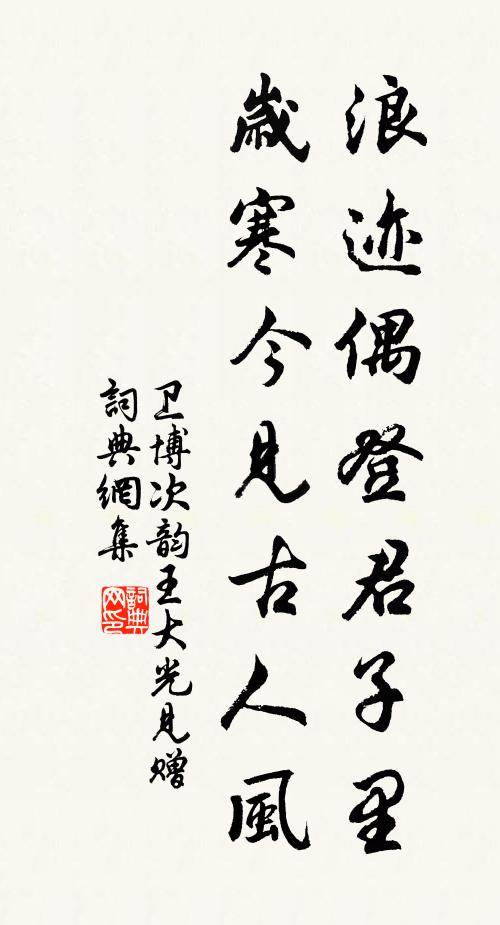 浪迹偶登君子里
歲寒今見古人風
卫博次韵王大光見贈
詞典網集
詞典网印